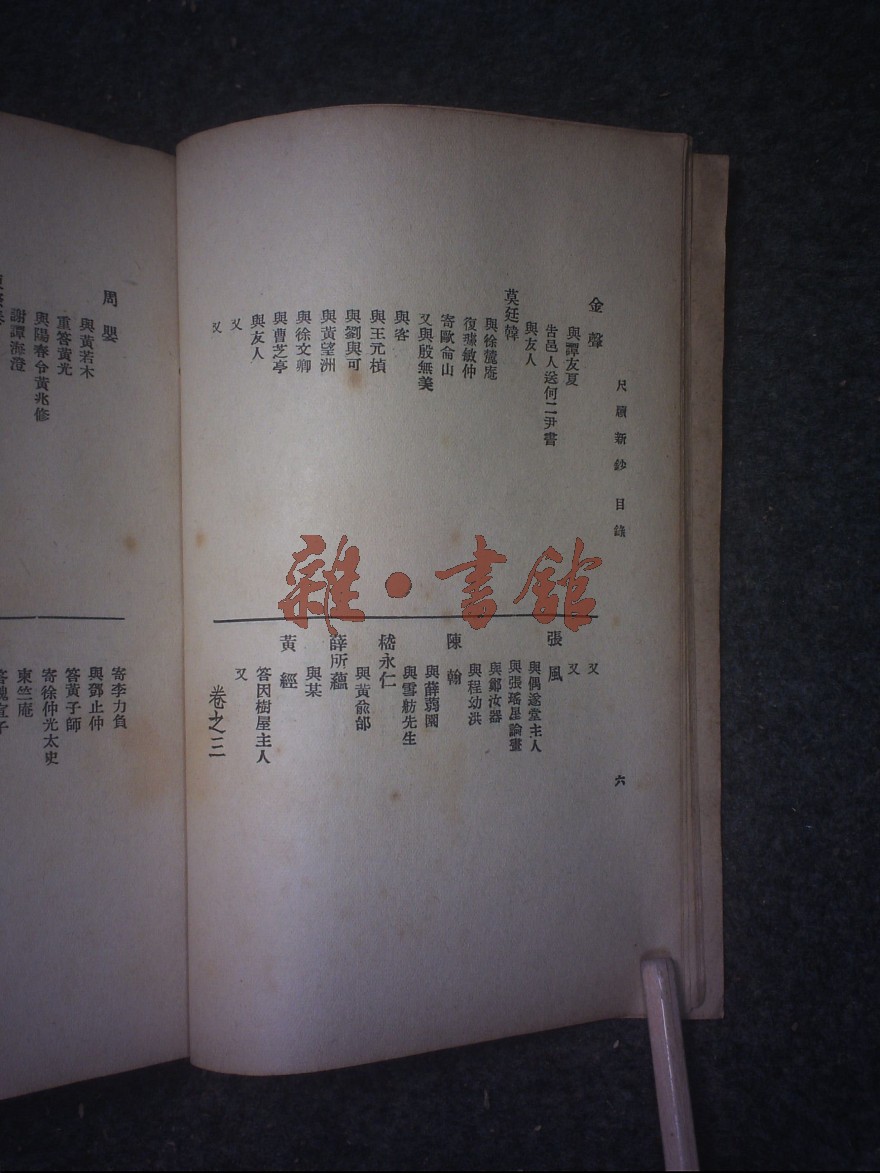 尺牘新鈔 目錄
六
金聲
與譚友夏
告邑人送何二尹書
與友人
莫廷韓
與徐麓庵
復骕敏仲
寄歐侖山
又與殷無美
與客
與王元楨
與劉與可
與黃望洲
與徐文卿
與曹芝亭
與友人
又
又
又
又
張風
與偶遂堂主人
與張瑤星論畫
與鄭汝器
與程幼洪
陳翰
與薛蒻園
與雪舫先生
嵇永仁
與黃兪邰
薛所蘊
與某
黃經
答因樹屋主人
又
卷之三
周嬰
與黃若木
重答黃光
與陽春令黃兆修
謝譚海澄
寄李力負
與鄧止仲
答黃子師
寄徐仲光太史
東竺庵
答魏宣子
雜·書館